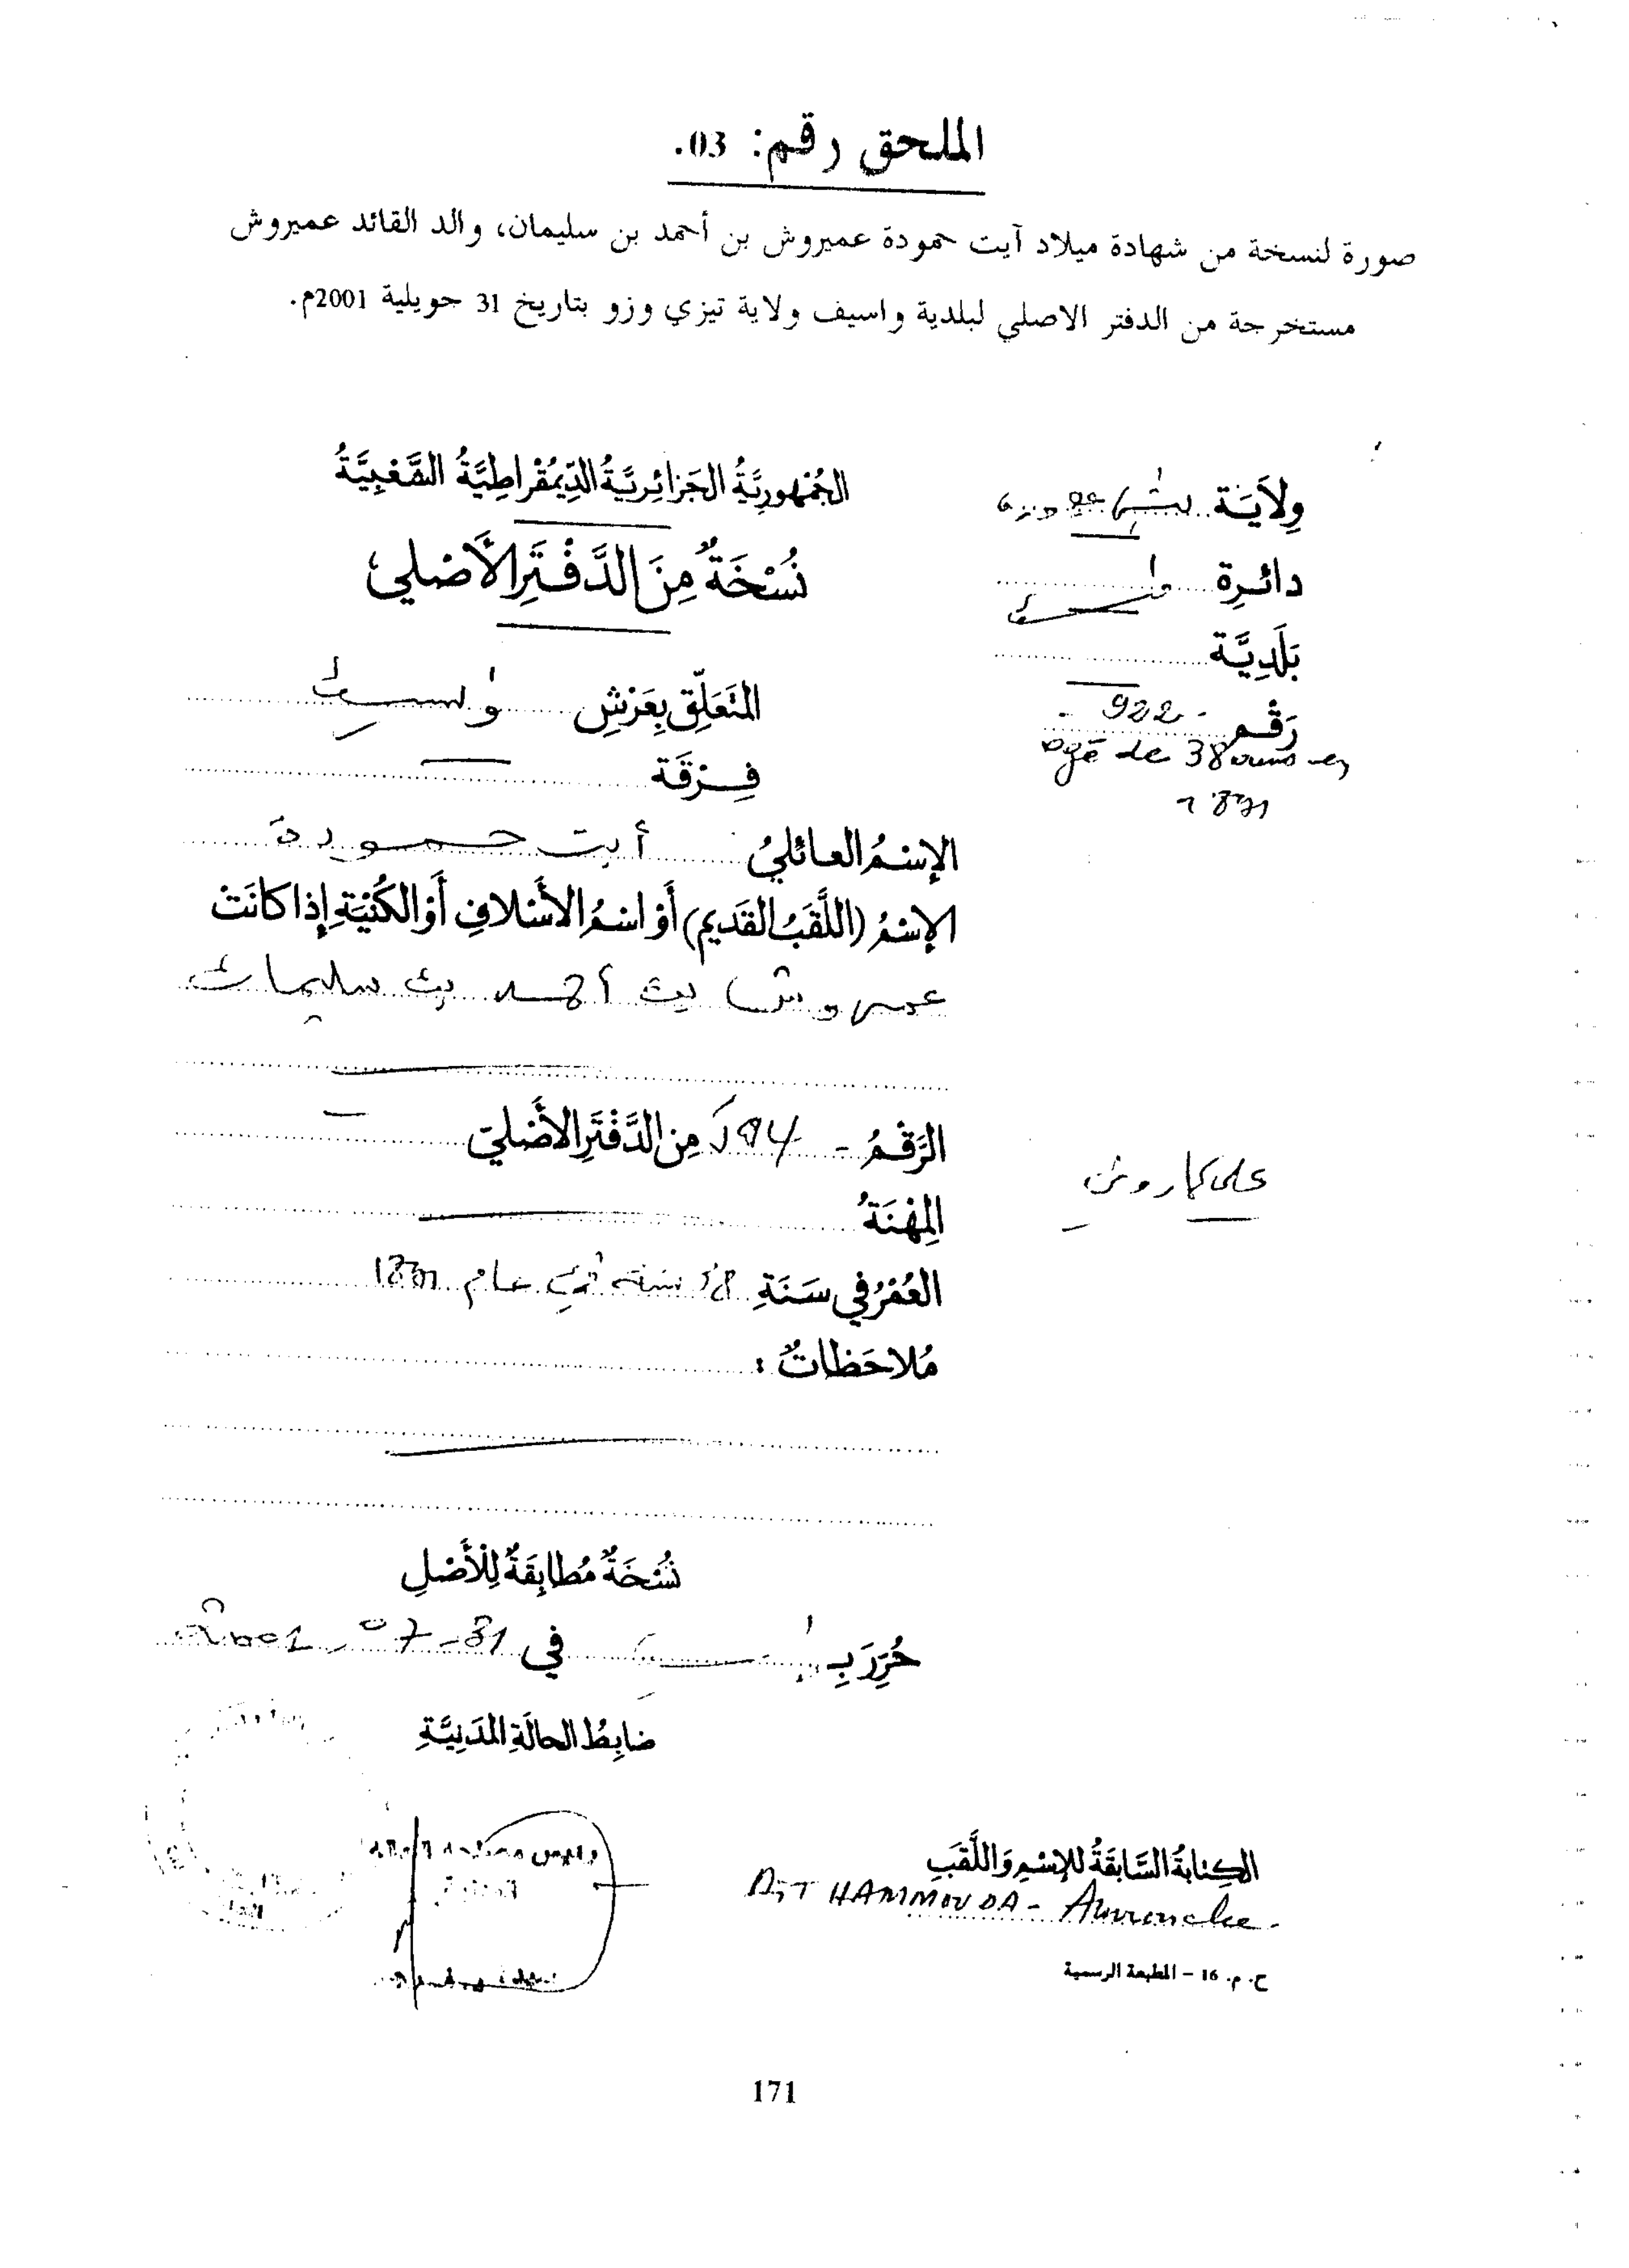 الملحق رقم: 03.
صورة لنسخة من شهادة ميلاد آيت حمودة عميروش بن أحمد بن سليمان، والد القائد عميروش
مستخرجة من الدفتر الاصلي لبلدية واسيف ولاية تيزي وزو بتاريخ 31 جويلية 2001م.
الجُمْهورِيَّةُ الجَزائِرِيَّةُ الدِّيمُقْراطِيَّةُ الشَّعْبِيَّةُ
نُسْخَةٌ مِنَ الدَّفْتَرِ الأَصْلِي
وِلاَيَة
دائرة
بَلَدِيَّة
رَقْم - 922 -
agé de 38 ans en
1891
المتَعَلِّق بِعَرْشِ واسيف
فِرْقَة
الإسْمُ العائليُ أيت حمودة
الإسْمُ (اللَّقَبُ القَديم) أَوْ اسْمُ الأَسْلافِ أَوْ الكُنْيَةِ إذا كانَتْ
عميروش بن أحمد بن سليمان
الرَّقْمُ - مِنَ الدَّفْتَرِ الأَصْليّ
المِهْنَةُ
العُمْرُ في سَنَةِ 38 سنة في عام 1891
مُلاحَظاتٌ :
نُسْخَةٌ مُطابِقَةٌ لِلْأَصْلِ
حُرِّرَ بِ في 31-07-2001
ضابِطُ الحالَةِ المَدَنِيَّةِ
الكِتابَةُ السَّابَقَةُ لِلإسْمِ وَاللَّقَبِ
AIT HAMMOUDA - Amirouche -
ح. م. 16 - المطبعة الرسمية
171